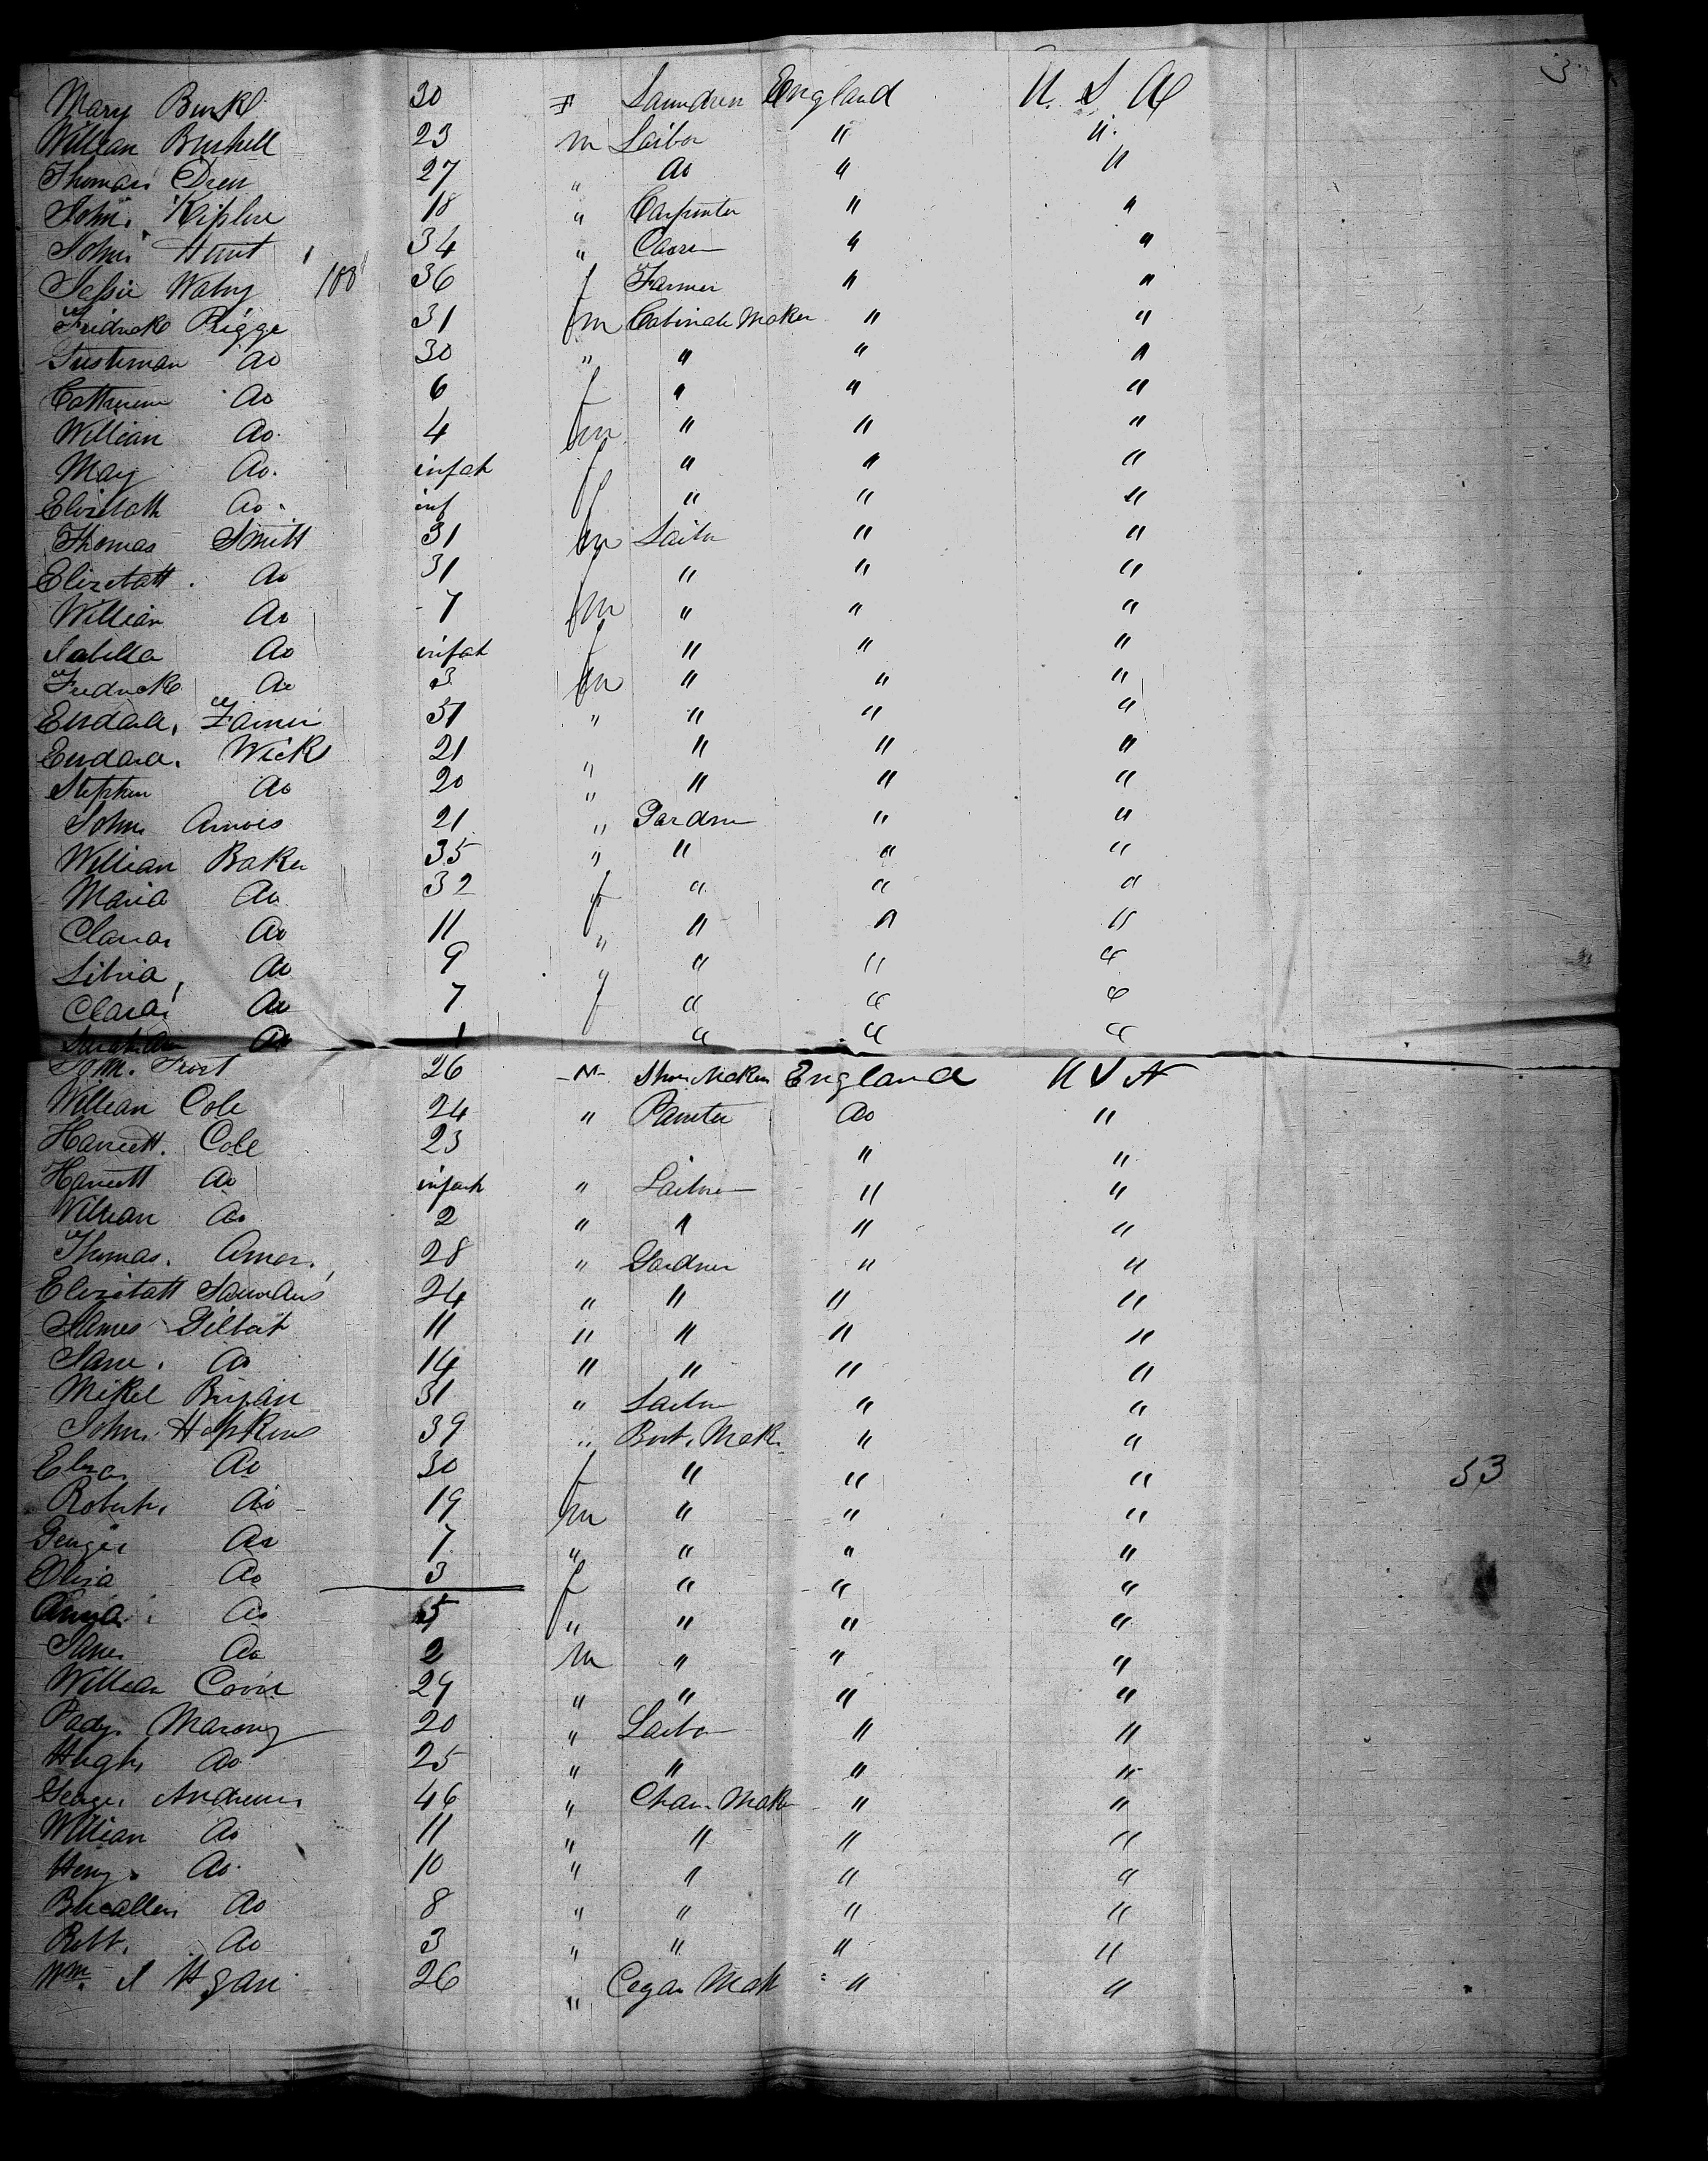 3
Mary Burk 30 F Laundres England U. S A
William Bushell 23 m Laibor " "
Thomas Drew 27 " do " "
John Kiplin 18 " Carpinter " "
John Hunt 34 " " "
Jessie 100 36 f Farmer " "
Fridrick Rigge 31 m Cabinate Maker " "
do 30 " " " "
Cattherine do 6 f " " "
William do 4 m " " "
May do infat f " " "
Elizetath do inf f " " "
Thomas Smitt 31 m Laibr " "
Elizetatt do 31 f " " "
William do 7 m " " "
Isabella do infat f " " "
Fredrick do 3 m " " "
31 " " " "
Wick 21 " " " "
Stephen do 20 " " " "
John 21 " Gardner " "
William Baker 35 " " " "
Maria do 32 f " " "
Clara do 11 " " " "
do 9 " " "
Clara do 7 f " " "
Sarah Ann do 1 " " "
Frost 26 M Shoe Maker England U S A
William Cole 24 " Painter do "
Harriett Cole 23 " "
Harriett do infat " " "
William do 2 " " " "
Thomas Amor 28 " Gardner " "
Elizetatt 24 " " " "
James Gilbert 11 " " " "
Jane do 14 " " " "
Mikel Bryan 31 " Laibor " "
John Hopkins 39 " Boot Mak " "
Eliza do 30 f " " "
Robert do 19 m " " "
53
George do 7 " " " "
Eliza do 3 f " " "
Anna do 5 " " " "
do 2 m " " "
William 29 " " " "
Pady Marony 20 " Laibor " "
Hugh do 25 " " " "
George Andrews 46 " Chair Mak " "
William do 11 " " " "
Henry do 10 " " " "
do 8 " " " "
Robt. do 3 " " " "
Wm. 26 " Cegar Mak " "